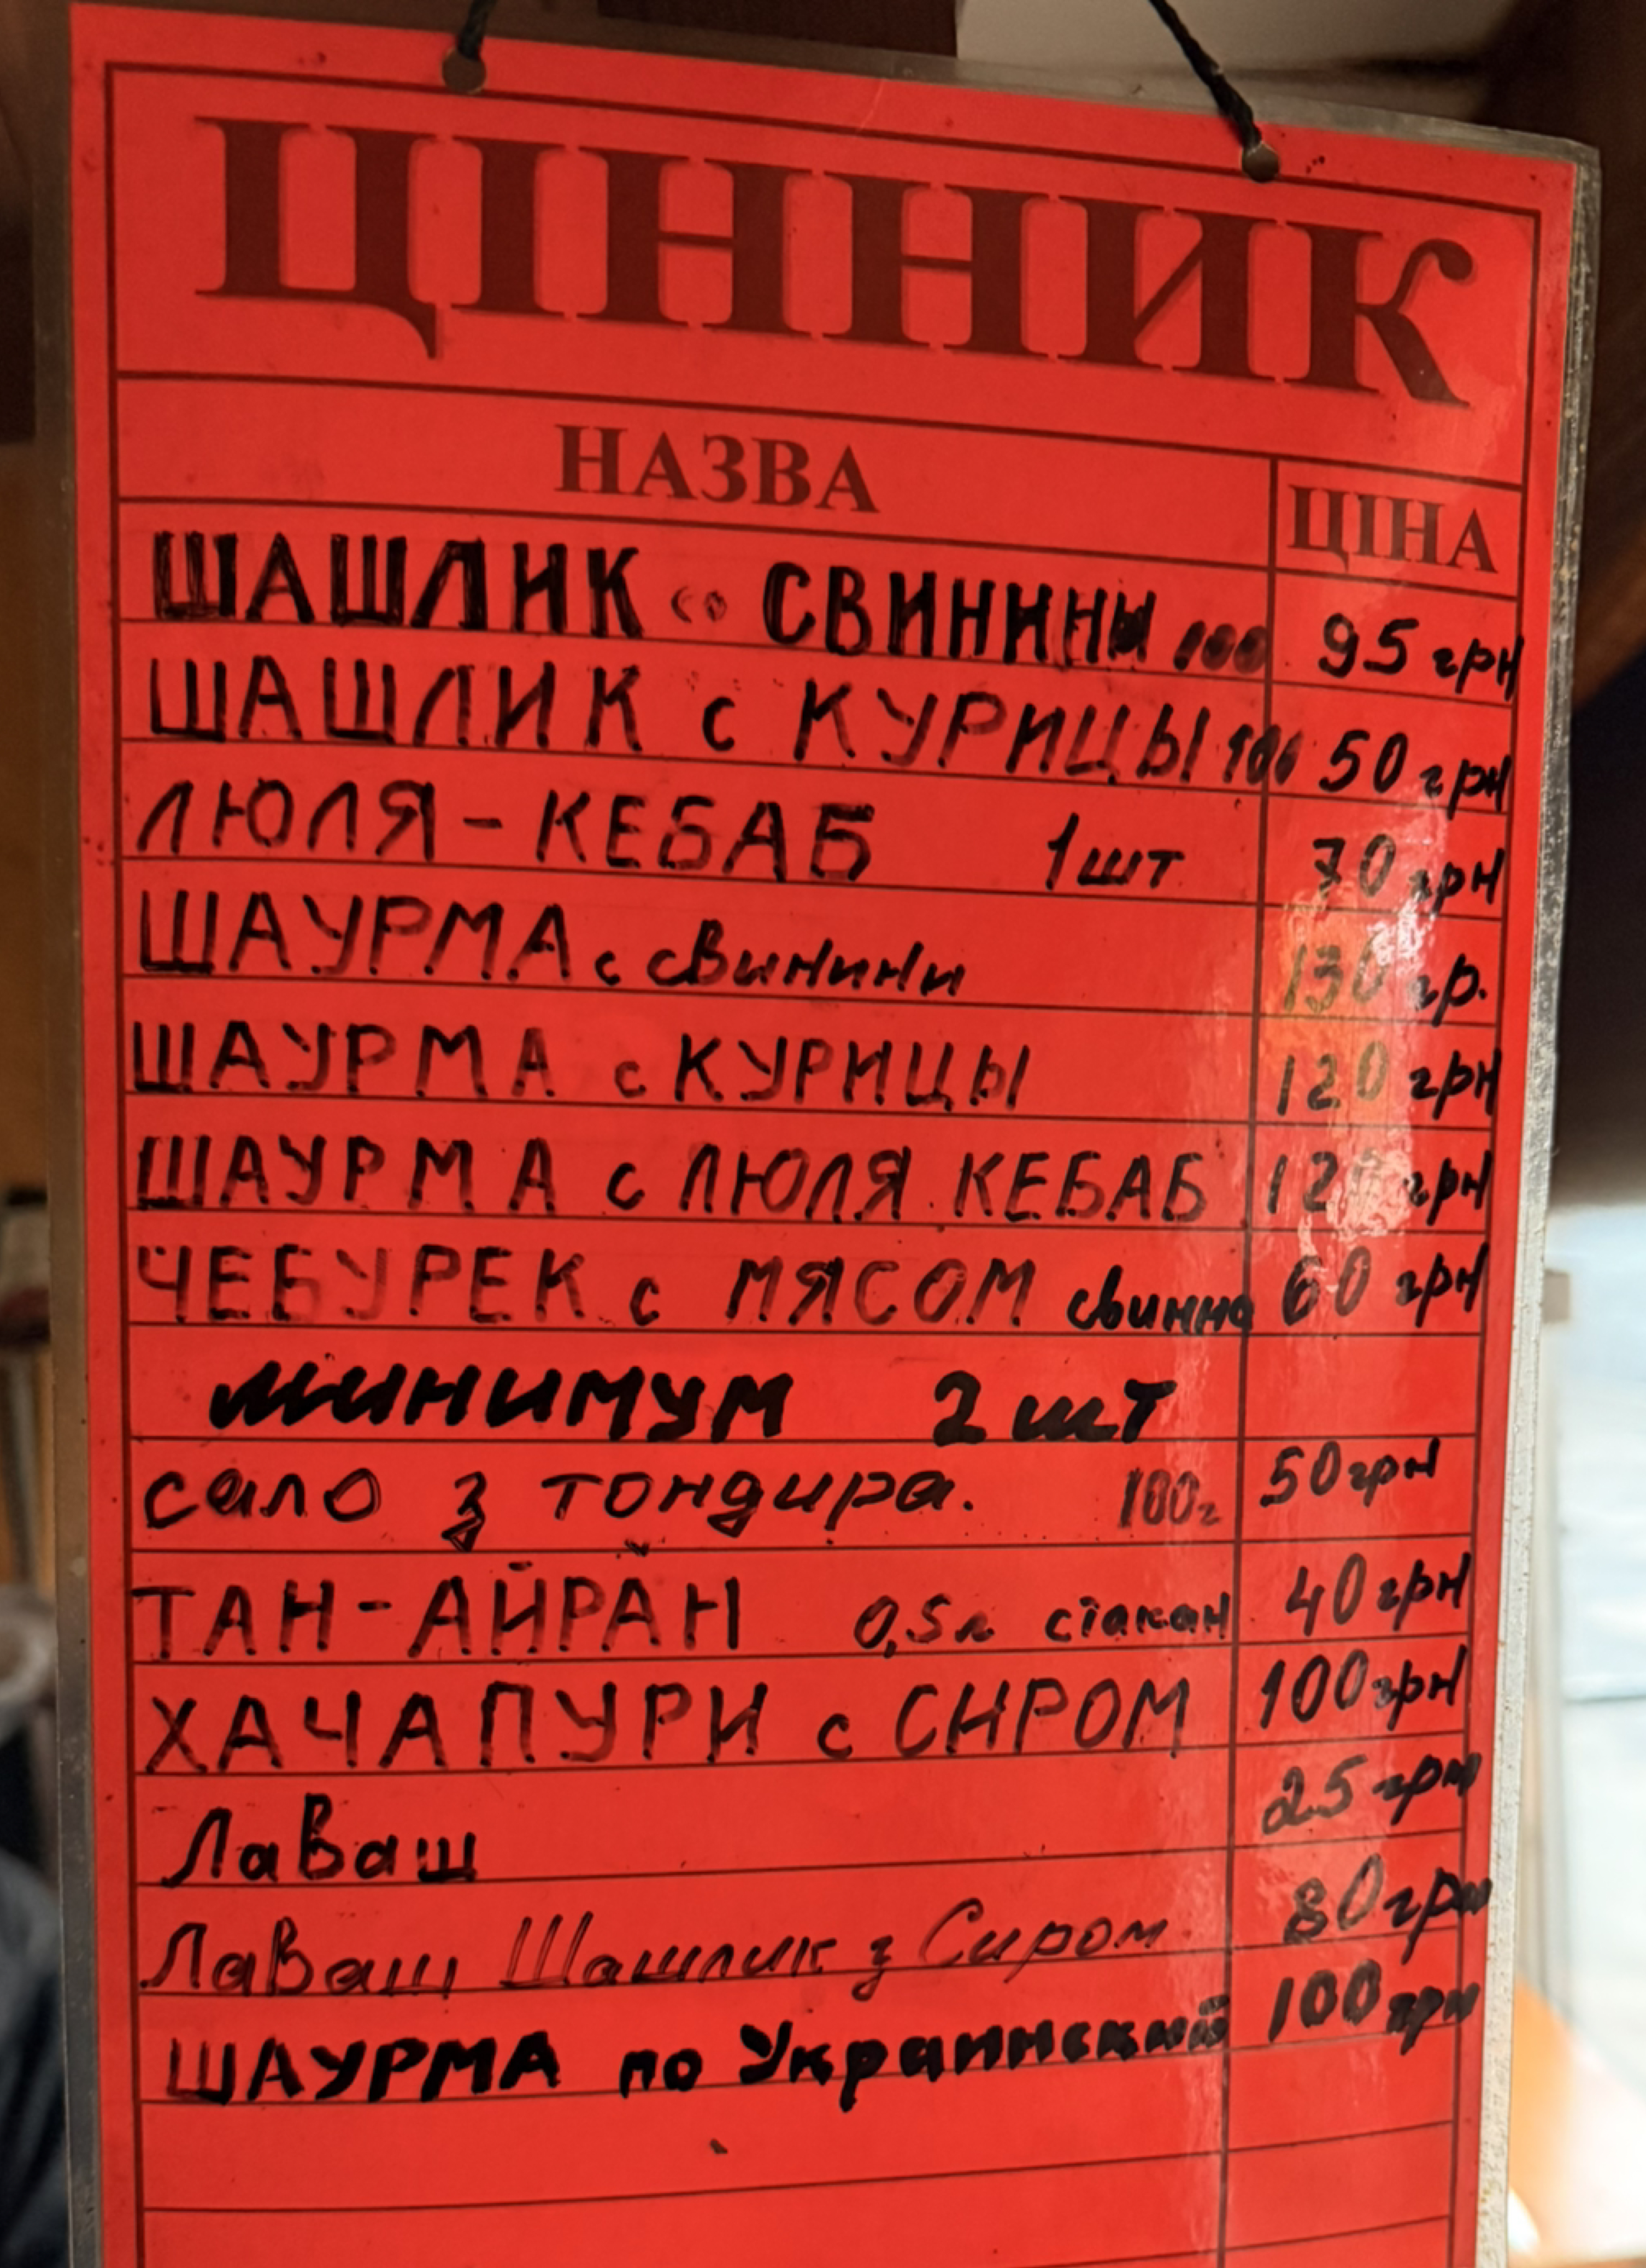 ЦІННИК
НАЗВА ЦІНА
ШАШЛИК со СВИНИНЫ 100 95 грн
ШАШЛИК с КУРИЦЫ 100 50 грн
ЛЮЛЯ-КЕБАБ 1шт 70 грн
ШАУРМА с свинини 130 гр.
ШАУРМА с КУРИЦЫ 120 грн
ШАУРМА с ЛЮЛЯ КЕБАБ 120 грн
ЧЕБУРЕК с МЯСОМ свинна 60 грн
минимум 2 шт
сало з тондира. 100г 50 грн
ТАН-АЙРАН 0,5л стакан 40 грн
ХАЧАПУРИ с СИРОМ 100 грн
Лаваш 25 грн
Лаваш Шашлик з Сиром 80 грн
ШАУРМА по Украинский 100 грн